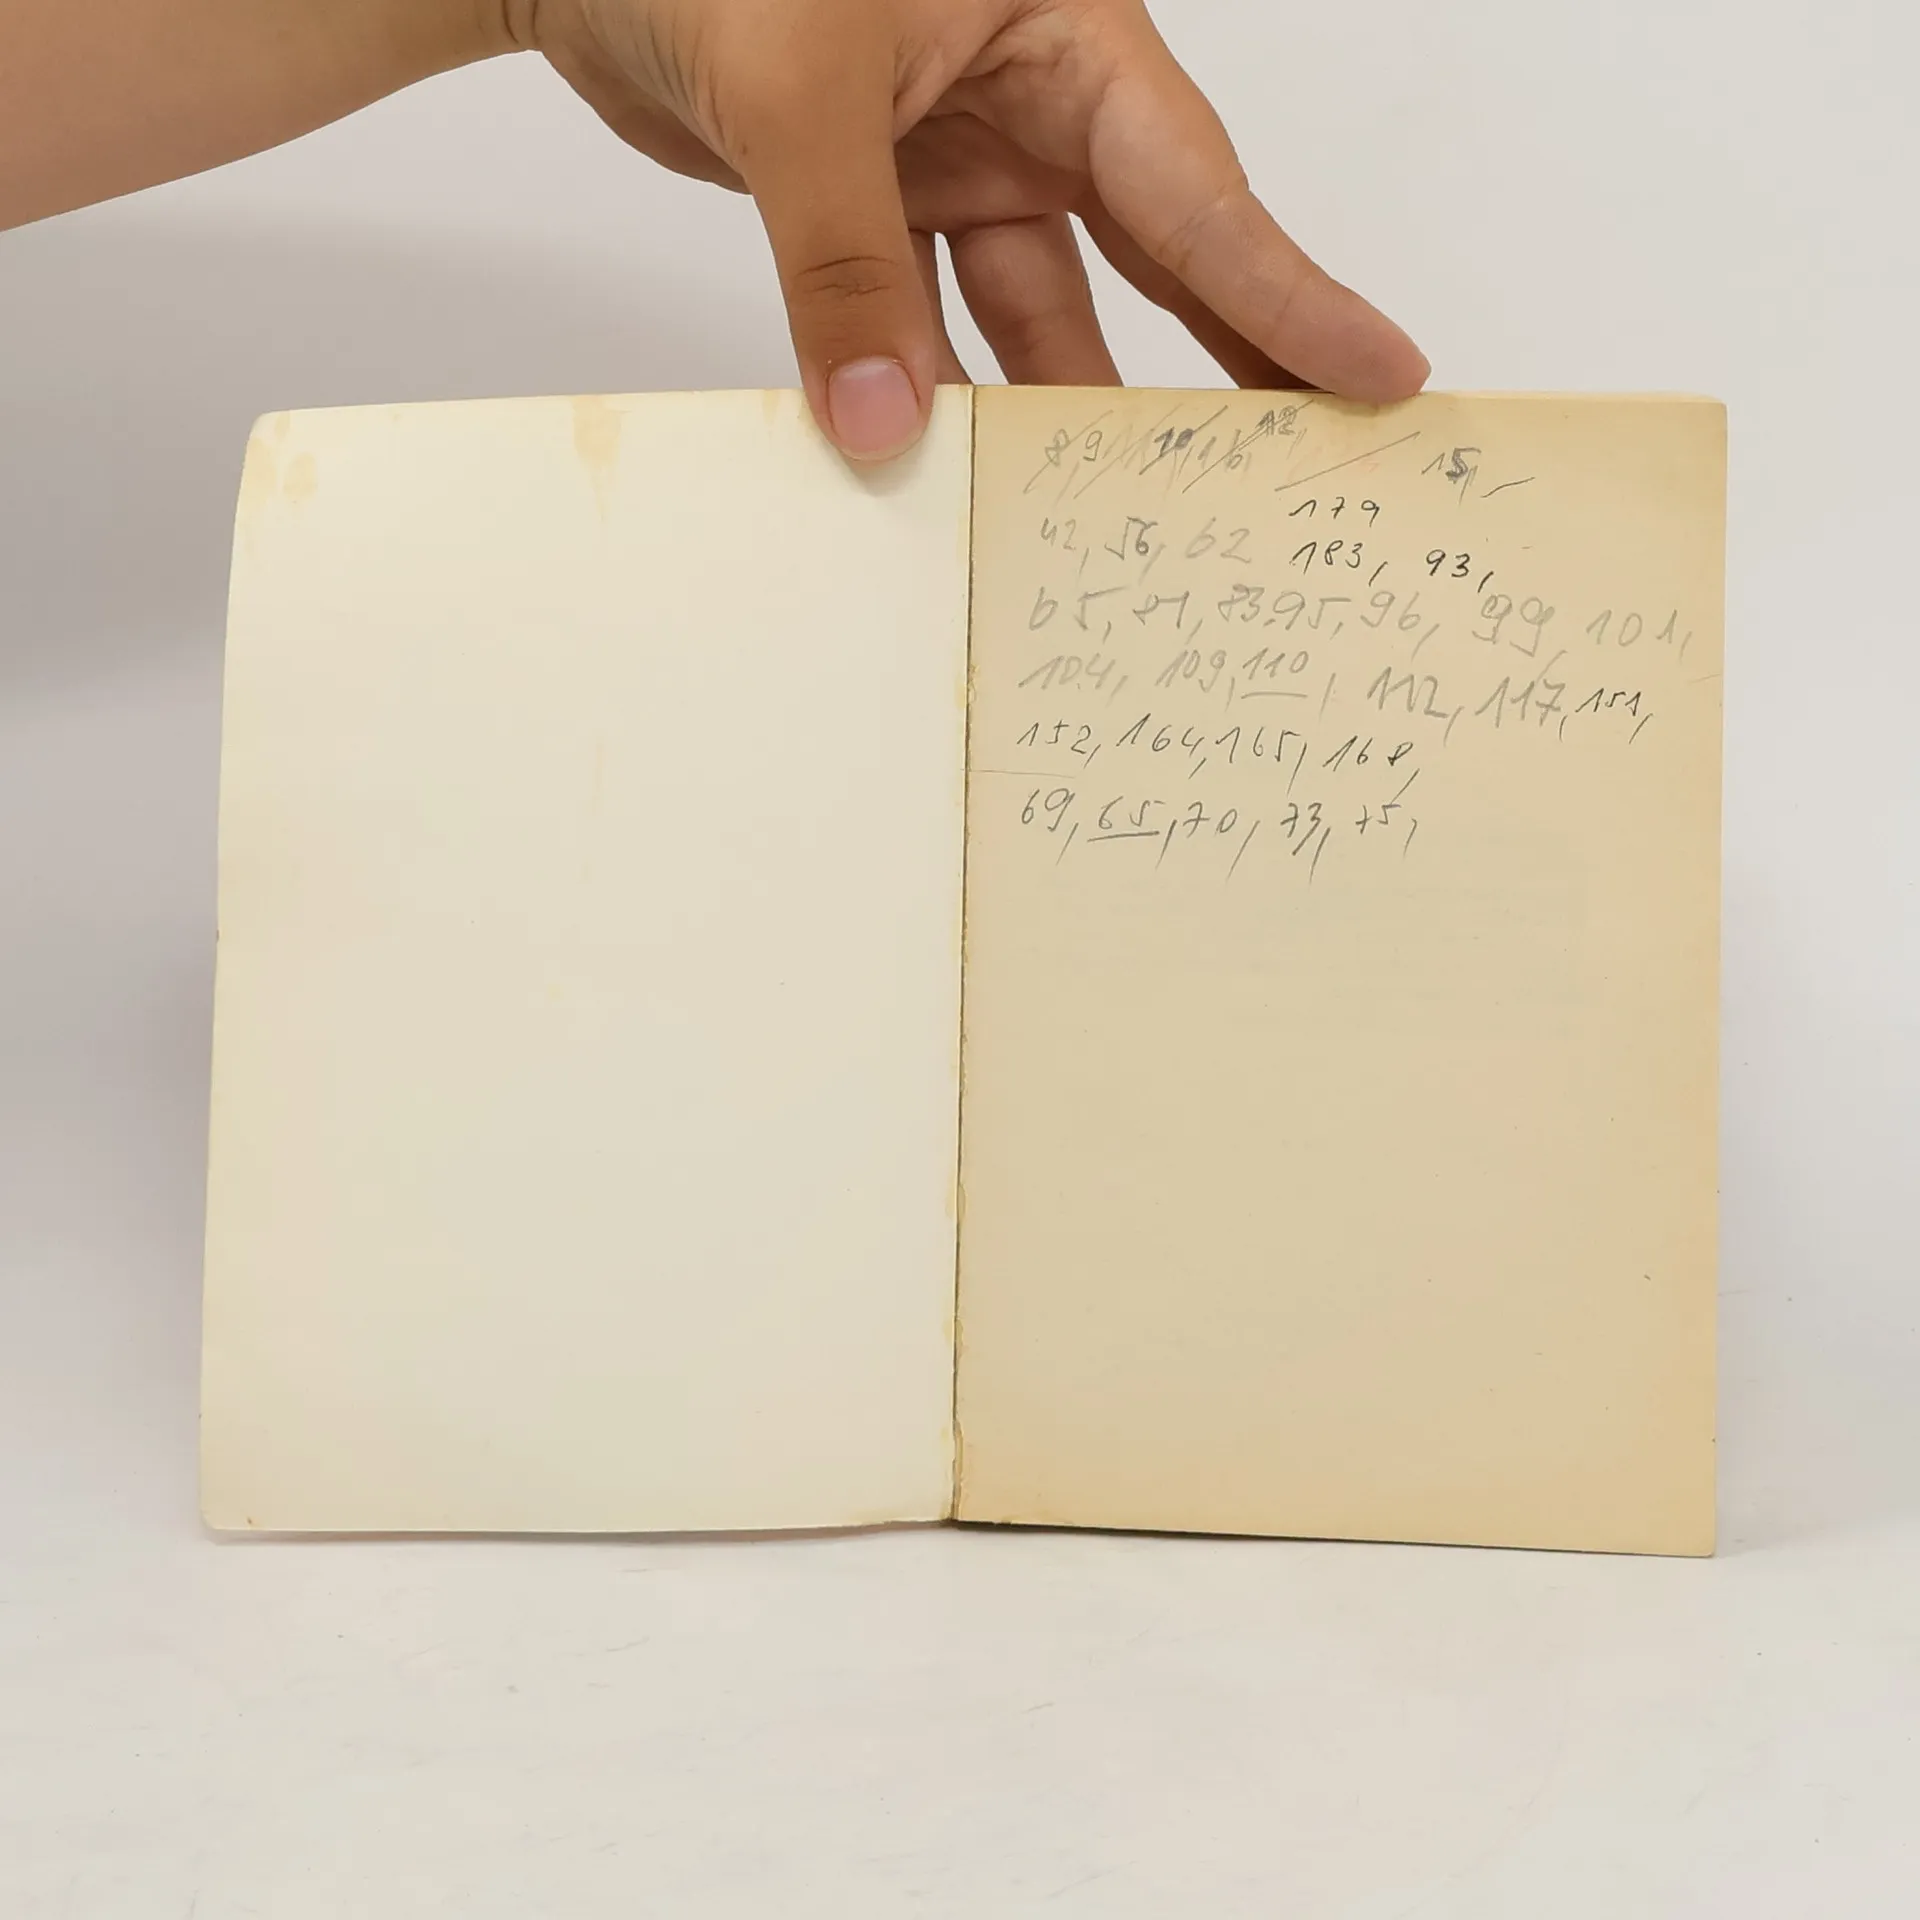 8, 9 10, 12, 15,
179
42, 56, 62 183, 93,
65, 81, 83, 95, 96, 99, 101,
104, 109, 110, 112, 117, 151,
152, 164, 165, 168,
69, 65, 70, 73, 75,